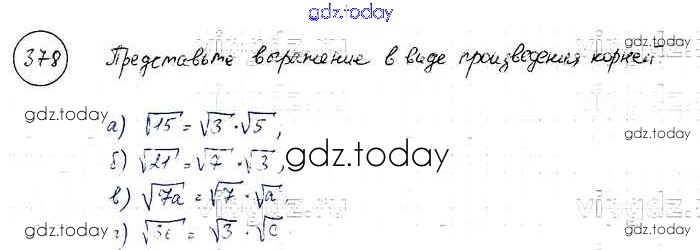 gdz.today
378 Представьте выражение в виде произведения корней.
gdz.today
gdz.today
а) √15 = √3 · √5;
gdz.today
б) √21 = √7 · √3;
gdz.today
в) √7a = √7 · √a
gdz.today
г) √3c = √3 · √c
gdz.today